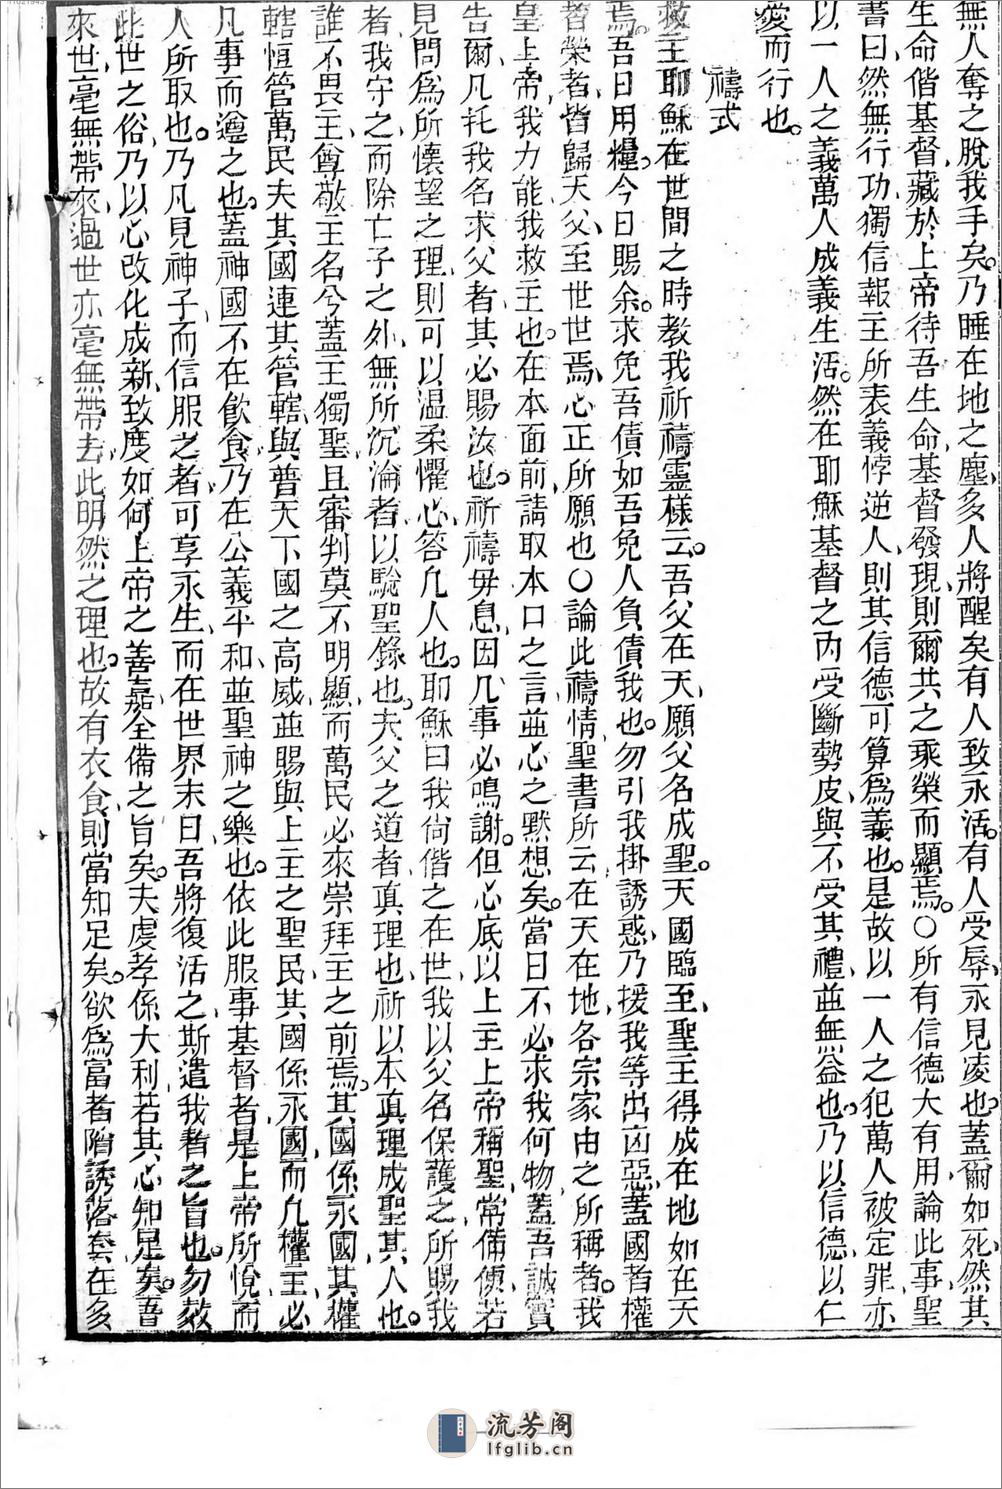 無人奪之脫我手矣乃睡在地之塵多人將醒矣有人致永活有人受辱永見凌也蓋爾如死然其
生命偕基督藏於上帝待吾生命基督發現則爾共之乘榮而顯焉○所有信德大有用論此事聖
書曰然無行功獨信報主所表義悖逆人則其信德可算爲義也是故以一人之犯萬人被定罪亦
以一人之義萬人成義生活然在耶穌基督之內受斷勢皮與不受其禮並無益也乃以信德以仁
愛而行也
禱式
救主耶穌在世間之時教我祈禱靈樣云吾父在天願父名成聖天國臨至聖王得成在地如在天
焉吾日用糧今日賜余求免吾債如吾免人負債我也勿引我掛誘惑乃援我等出凶惡蓋國者權
者榮者皆歸天父至世世焉心正所願也○論此禱情聖書所云在天在地各宗家由之所稱者我
皇上帝我力能我救主也在本面前請取本口之言並心之默想矣當日不必求我何物蓋吾誠實
告爾凡托我名求父者其必賜汝也祈禱毋息因凡事必鳴謝但心底以上主上帝稱聖常備便若
見問爲所懷望之理則可以溫柔懼心答凡人也耶穌曰我尚偕之在世我以父名保護之所賜我
者我守之而除亡子之外無所沉淪者以驗聖錄也夫父之道者眞理也祈以本眞理成聖其人也
誰不畏主尊敬主名兮蓋主獨聖且審判莫不明顯而萬民必來崇拜主之前焉其國係永國其權
轄恒管萬民夫其國連其管轄與普天下國之高威並賜與上主之聖民其國係永國而凡權主必
凡事而遵之也蓋神國不在飲食乃在公義平和並聖神之樂也依此服事基督者是上帝所悅而
人所取也乃凡見神子而信服之者可享永生而在世界末日吾將復活之斯遣我者之旨也勿效
此世之俗乃以心改化成新致度如何上帝之善嘉全備之旨矣夫虔孝係大利若其心知足矣吾
來世毫無帶來過世亦毫無帶去此明然之理也故有衣食則當知足矣欲爲富者陷誘落套在多
流芳阁
lfglib.cn